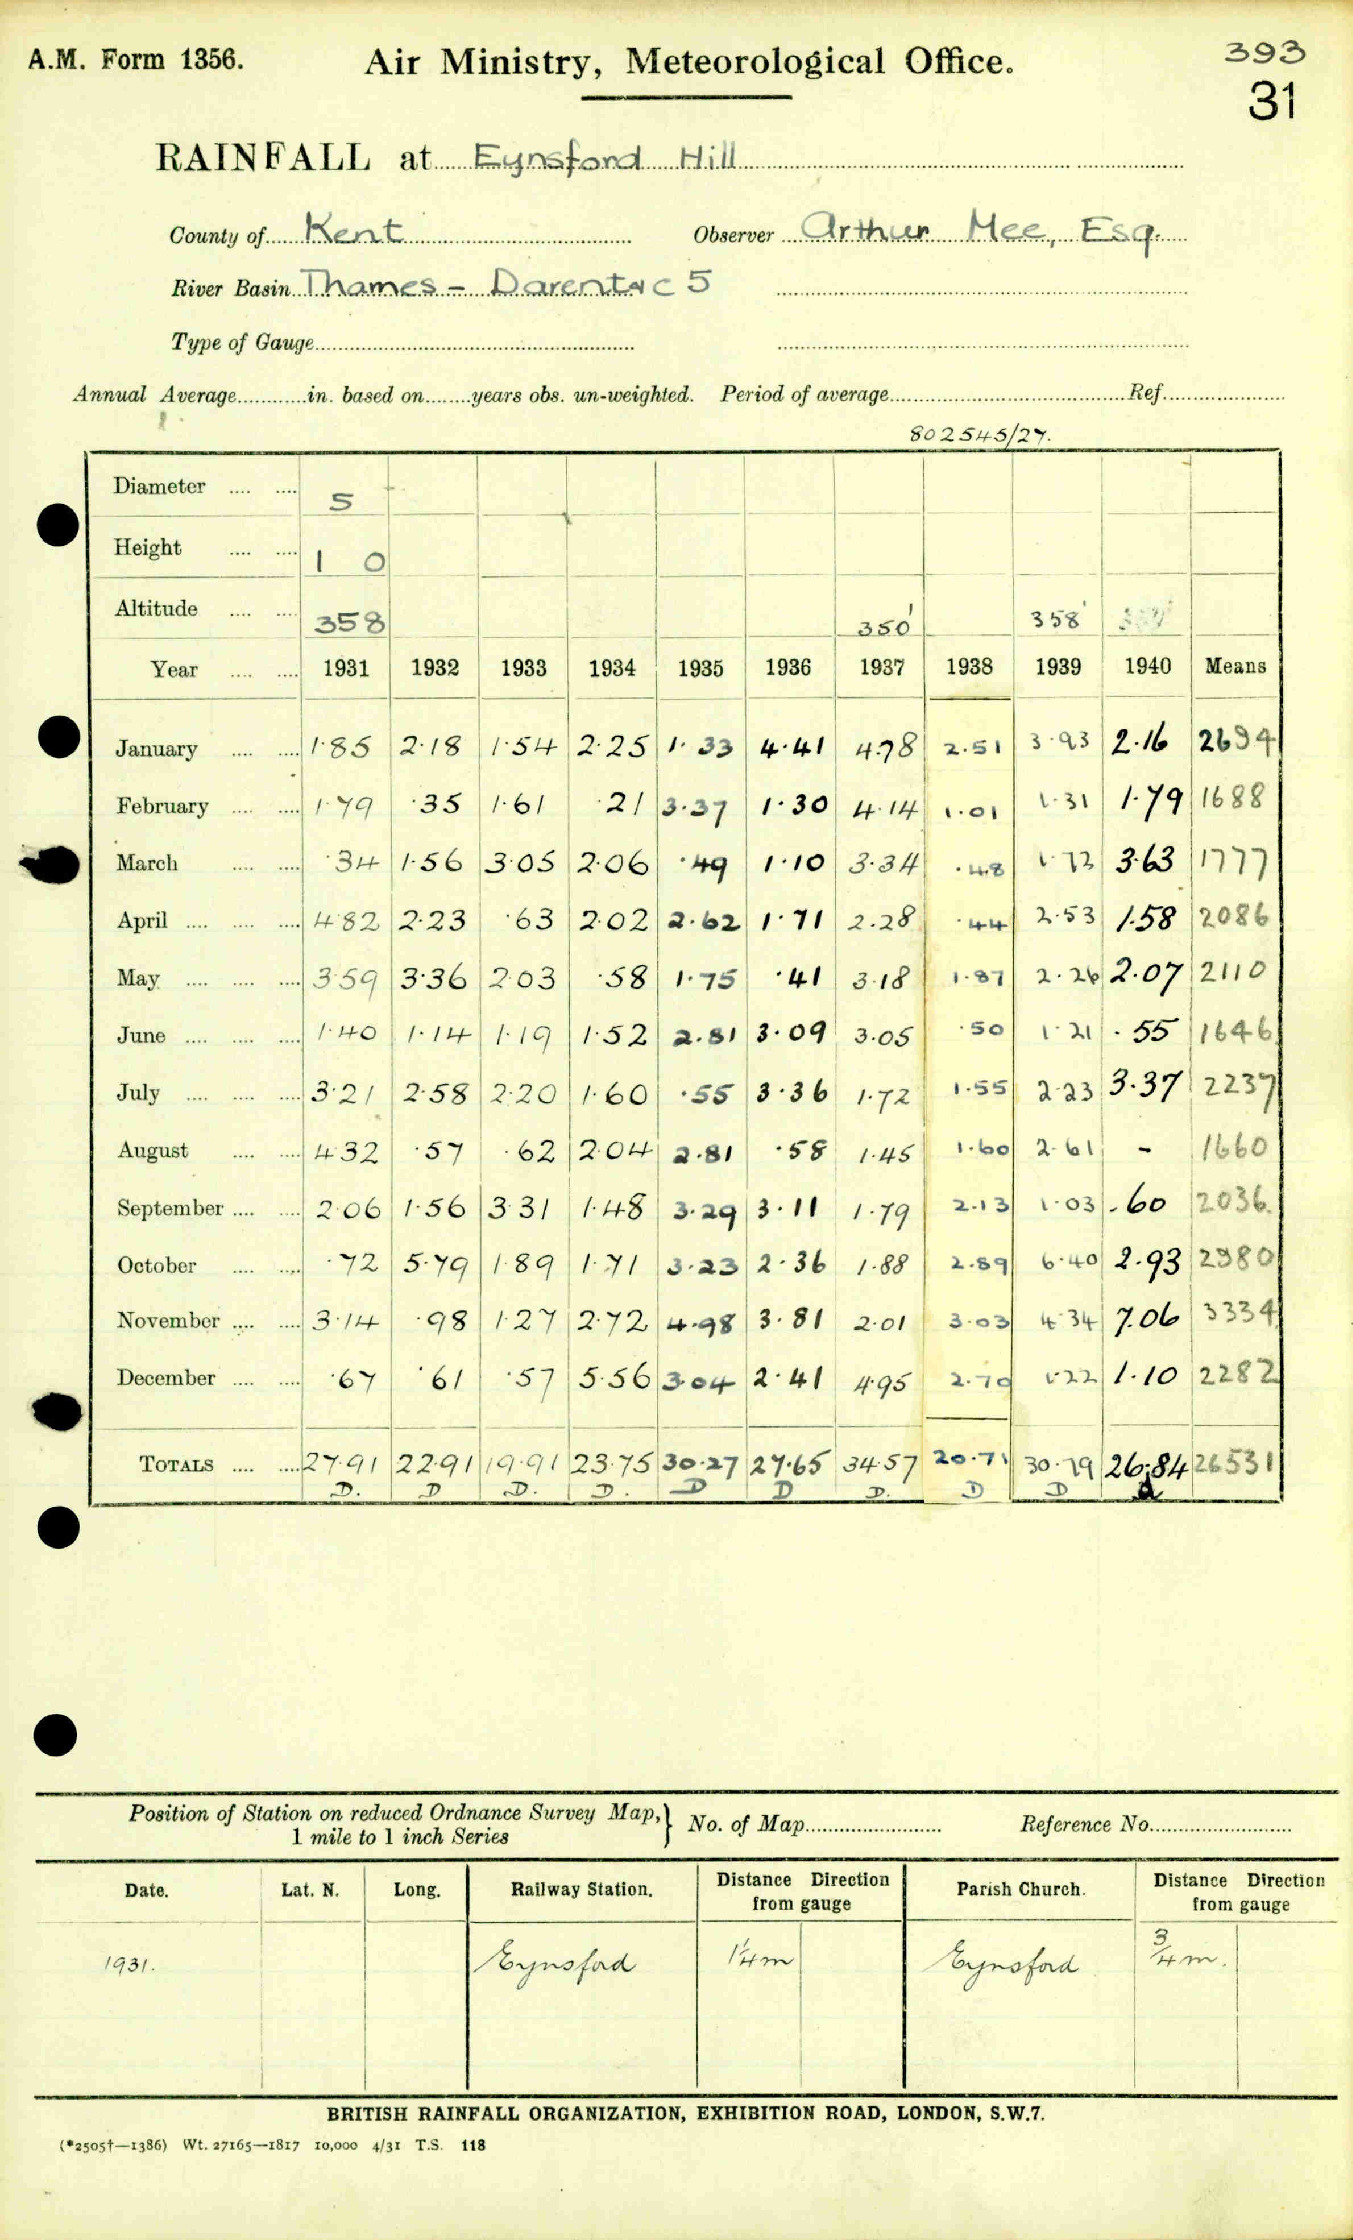 A.M. Form 1356.
Air Ministry, Meteorological Office.
393
31
RAINFALL at Eynsford Hill
County of Kent Observer Arthur Mee, Esq.
River Basin Thames - Darent
Type of Gauge
Annual Average in. based on years obs. un-weighted. Period of average Ref.
802545/27.
Diameter 5
Height 1 0
Altitude 358 350' 358'
Year 1931 1932 1933 1934 1935 1936 1937 1938 1939 1940 Means
January 1.85 2.18 1.54 2.25 1.33 4.41 4.78 2.51 3.93 2.16 2694
February 1.79 .35 1.61 .21 3.37 1.30 4.14 1.01 1.31 1.79 1688
March .34 1.56 3.05 2.06 .49 1.10 3.34 .48 1.72 3.63 1777
April 4.82 2.23 .63 2.02 2.62 1.71 2.28 .44 2.53 1.58 2086
May 3.59 3.36 2.03 .58 1.75 .41 3.18 1.87 2.26 2.07 2110
June 1.40 1.14 1.19 1.52 2.81 3.09 3.05 .50 1.21 .55 1646
July 3.21 2.58 2.20 1.60 .55 3.36 1.72 1.55 2.23 3.37 2237
August 4.32 .57 .62 2.04 2.81 .58 1.45 1.60 2.61 - 1660
September 2.06 1.56 3.31 1.48 3.29 3.11 1.79 2.13 1.03 .60 2036
October .72 5.79 1.89 1.71 3.23 2.36 1.88 2.89 6.40 2.93 2980
November 3.14 .98 1.27 2.72 4.98 3.81 2.01 3.03 4.34 7.06 3334
December .67 .61 .57 5.56 3.04 2.41 4.95 2.70 1.22 1.10 2282
TOTALS 27.91 22.91 19.91 23.75 30.27 27.65 34.57 20.71 30.79 26.84 26531
D. D D. D. D D D. D D d
Position of Station on reduced Ordnance Survey Map, } No. of Map Reference No.
1 mile to 1 inch Series
Date. Lat. N. Long. Railway Station. Distance Direction from gauge Parish Church. Distance Direction from gauge
1931. Eynsford 1¼m Eynsford ¾m.
BRITISH RAINFALL ORGANIZATION, EXHIBITION ROAD, LONDON, S.W.7.
(*2505†—1386) Wt. 27165—1817 10,000 4/31 T.S. 118